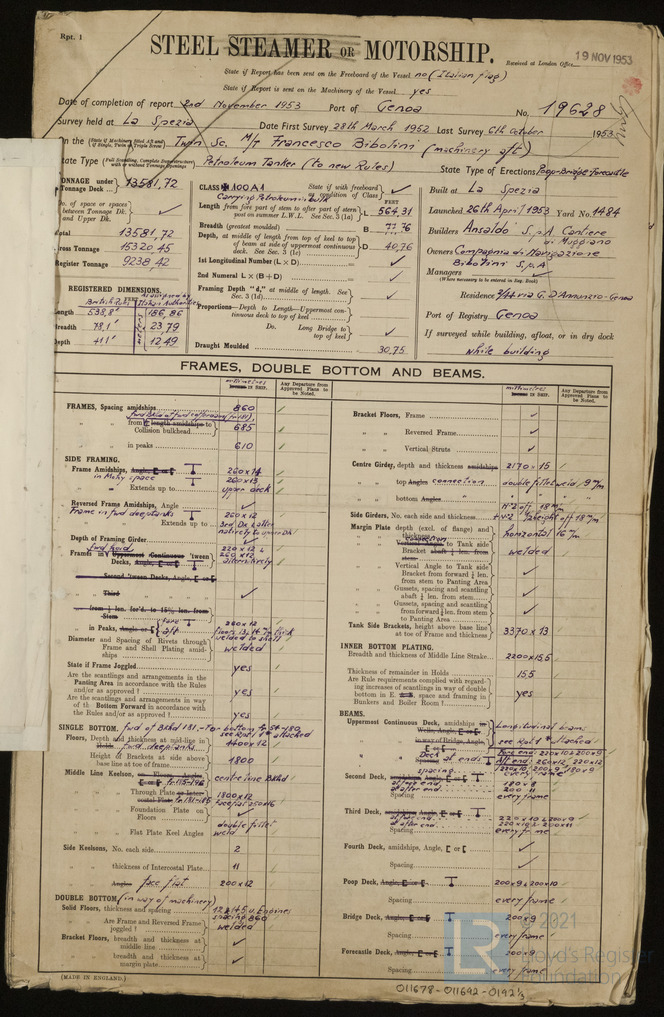 Rpt. 1
STEEL STEAMER OR MOTORSHIP.
Received at London Office
19 NOV 1953
State if Report has been sent on the Freeboard of the Vessel no (Italian flag)
State if Report is sent on the Machinery of the Vessel yes
Date of completion of report 2nd November 1953 Port of Genoa No. 19628
Survey held at La Spezia Date First Survey 28th March 1952 Last Survey 6th October 1953
On the Twin Sc. M/T Francesco Bibolini (machinery aft)
State Type Petroleum Tanker (to new Rules) State Type of Erections Poop-Bridge-Forecastle
TONNAGE under Tonnage Deck 13581,72
No. of space or spaces between Tonnage Dk. and Upper Dk.
Total 13581,72
Gross Tonnage 15320,45
Register Tonnage 9238,42
REGISTERED DIMENSIONS.
British Rules
Length 538,8' 186,86
Breadth 78,1' 23,79
Depth 41,1' 12,49
CLASS 100A1 State if with freeboard as condition of Class
Carrying Petroleum in bulk
FEET
Length from fore part of stem to after part of stern post on summer L.W.L. See Sec. 3 (1a) L 564,31
Breadth (greatest moulded) B 77,76
Depth, at middle of length from top of keel to top of beam at side of uppermost continuous deck. See Sec. 3 (1c) D 40,76
1st Longitudinal Number (L × D)
2nd Numeral L × (B + D)
Framing Depth "d," at middle of length. See Sec. 3 (1d)
Proportions—Depth to Length—Uppermost continuous deck to top of keel
Do. Long Bridge to top of keel
Draught Moulded 30,75
Built at La Spezia
Launched 26th April 1953 Yard No. 1484
Builders Ansaldo S.p.A. Cantiere di Muggiano
Owners Compagnia di Navigazione Bibolini S.p.A
Managers
(Where necessary to be entered in Reg. Book)
Residence 2/44 via G. D'Annunzio-Genoa
Port of Registry Genoa
If surveyed while building, afloat, or in dry dock
while building
FRAMES, DOUBLE BOTTOM AND BEAMS.
millimetres
Any Departure from Approved Plans to be Noted.
millimetres
Any Departure from Approved Plans to be Noted.
FRAMES, Spacing amidships 860
Collision bulkhead 685
in peaks 610
SIDE FRAMING.
Frame Amidships, Angle, 260x14
in Mchy space 260x13
Extends up to upper deck
Reversed Frame Amidships, Angle
Frame in fwd deeptanks 260x12
Extends up to
Depth of Framing Girder
Frames in Uppermost Continuous 'tween Decks, Angle, alternatively
Second 'tween Decks, Angle,
Third
from ⅕ len. for'd. to 15% len. from Stem
in Peaks, Angle or 260x12
Diameter and Spacing of Rivets through Frame and Shell Plating amidships welded
State if Frame Joggled yes
Are the scantlings and arrangements in the Panting Area in accordance with the Rules and/or as approved? yes
Are the scantlings and arrangements in way of the Bottom Forward in accordance with the Rules and/or as approved? yes
SINGLE BOTTOM,
Floors, Depth and thickness at mid-line in fwd. deeptanks 1400x12
Height of Brackets at side above base line at toe of frame 1800
Middle Line Keelson, centreline Bkhd
Through Plate 1800x12
Foundation Plate on Floors
Flat Plate Keel Angles double fillet weld
Side Keelsons, No. each side 2
thickness of Intercostal Plate 11
Angles face flat 200x12
DOUBLE BOTTOM, (in way of machinery)
Solid Floors, thickness and spacing
Are Frame and Reversed Frame joggled? welded
Bracket Floors, breadth and thickness at middle line
breadth and thickness at margin plate
Bracket Floors, Frame
Reversed Frame
Vertical Struts
Centre Girder, depth and thickness amidships 2170x15
top Angles connection double fillet weld, 9 m/m
bottom Angles
Side Girders, No. each side and thickness
Margin Plate depth (excl. of flange) and thickness horizontal 16 m/m
Vertical Angle to Tank side Bracket abaft ¼ len. from stem welded
Vertical Angle to Tank side Bracket from forward ¼ len. from stem to Panting Area
Gussets, spacing and scantling abaft ¼ len. from stem
Gussets, spacing and scantling from forward ¼ len. from stem to Panting Area
Tank Side Brackets, height above base line at toe of Frame and thickness 3370x13
INNER BOTTOM PLATING.
Breadth and thickness of Middle Line Strake 2200x15,5
Thickness of remainder in Holds 15,5
Are Rule requirements complied with regarding increases of scantlings in way of double bottom in E. space and framing in Bunkers and Boiler Room? yes
BEAMS.
Uppermost Continuous Deck, amidships Longitudinal beams
Second Deck,
Spacing every frame
Third Deck,
Spacing every frame
Fourth Deck, amidships, Angle,
Spacing
Poop Deck, Angle, 200x9 & 200x10
Spacing every frame
Bridge Deck, Angle, 200x9
Spacing every frame
Forecastle Deck, Angle, 200x9
Spacing every frame
(MADE IN ENGLAND.)
011678-011692-0192 1/3
© 2021
LR
Lloyd's Register
Foundation